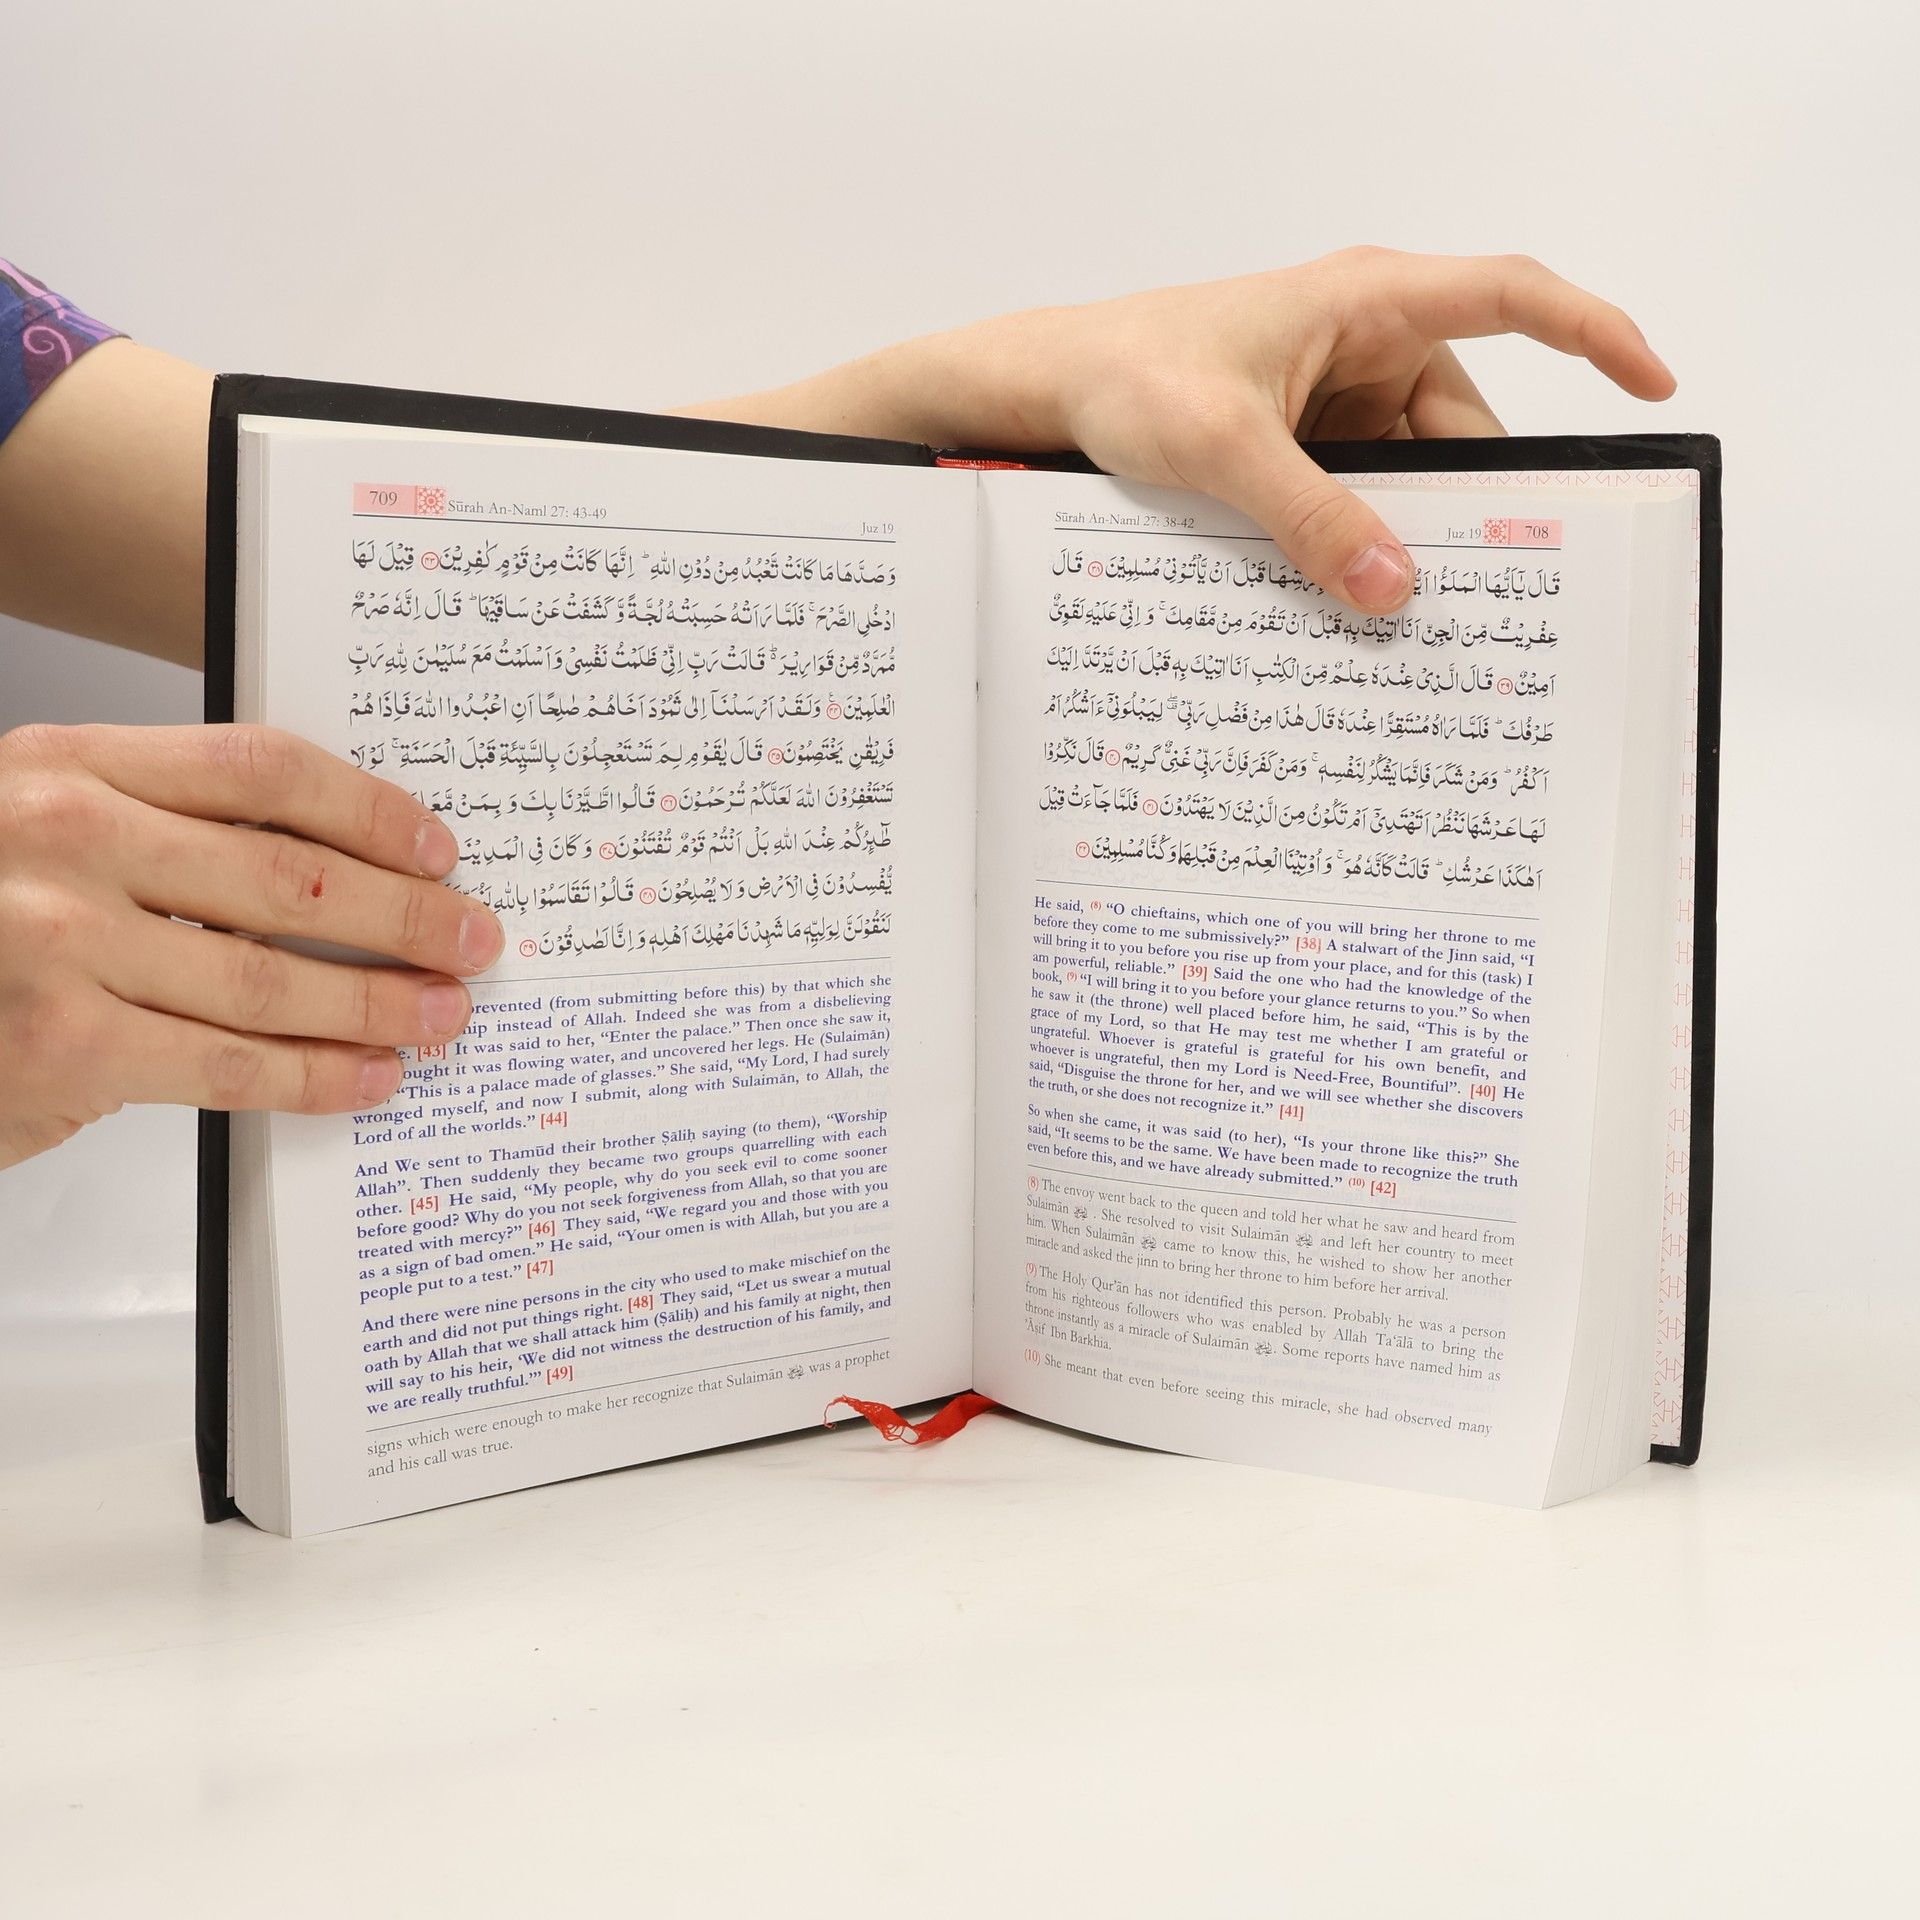 Sūrah An-Naml 27: 38-42
Juz 19 708
قَالَ يٰٓاَيُّهَا الْمَلَؤُا قَبْلَ اَنْ يَّاْتُوْنِيْ مُسْلِمِيْنَ ﴿۳۸﴾ قَالَ
عِفْرِيْتٌ مِّنَ الْجِنِّ اَنَا اٰتِيْكَ بِهٖ قَبْلَ اَنْ تَقُوْمَ مِنْ مَّقَامِكَ ۚ وَ اِنِّيْ عَلَيْهِ لَقَوِيٌّ
اَمِيْنٌ ﴿۳۹﴾ قَالَ الَّذِيْ عِنْدَهٗ عِلْمٌ مِّنَ الْكِتٰبِ اَنَا اٰتِيْكَ بِهٖ قَبْلَ اَنْ يَّرْتَدَّ اِلَيْكَ
طَرْفُكَ ؕ فَلَمَّا رَاٰهُ مُسْتَقِرًّا عِنْدَهٗ قَالَ هٰذَا مِنْ فَضْلِ رَبِّيْ ۖ لِيَبْلُوَنِيْٓ ءَاَشْكُرُ اَمْ
اَكْفُرُ ؕ وَمَنْ شَكَرَ فَاِنَّمَا يَشْكُرُ لِنَفْسِهٖ ۚ وَمَنْ كَفَرَ فَاِنَّ رَبِّيْ غَنِيٌّ كَرِيْمٌ ﴿۴۰﴾ قَالَ نَكِّرُوْا
لَهَا عَرْشَهَا نَنْظُرْ اَتَهْتَدِيْٓ اَمْ تَكُوْنُ مِنَ الَّذِيْنَ لَا يَهْتَدُوْنَ ﴿۴۱﴾ فَلَمَّا جَآءَتْ قِيْلَ
اَهٰكَذَا عَرْشُكِ ؕ قَالَتْ كَاَنَّهٗ هُوَ ۚ وَ اُوْتِيْنَا الْعِلْمَ مِنْ قَبْلِهَا وَ كُنَّا مُسْلِمِيْنَ ﴿۴۲﴾
He said, (8) “O chieftains, which one of you will bring her throne to me
before they come to me submissively?” [38] A stalwart of the Jinn said, “I
will bring it to you before you rise up from your place, and for this (task) I
am powerful, reliable.” [39] Said the one who had the knowledge of the
book, (9) “I will bring it to you before your glance returns to you.” So when
he saw it (the throne) well placed before him, he said, “This is by the
grace of my Lord, so that He may test me whether I am grateful or
ungrateful. Whoever is grateful is grateful for his own benefit, and
whoever is ungrateful, then my Lord is Need-Free, Bountiful”. [40] He
said, “Disguise the throne for her, and we will see whether she discovers
the truth, or she does not recognize it.” [41]
So when she came, it was said (to her), “Is your throne like this?” She
said, “It seems to be the same. We have been made to recognize the truth
even before this, and we have already submitted.” (10) [42]
(8) The envoy went back to the queen and told her what he saw and heard from
Sulaimān ﷺ. She resolved to visit Sulaimān ﷺ and left her country to meet
him. When Sulaimān ﷺ came to know this, he wished to show her another
miracle and asked the jinn to bring her throne to him before her arrival.
(9) The Holy Qur’ān has not identified this person. Probably he was a person
from his righteous followers who was enabled by Allah Ta‘ālā to bring the
throne instantly as a miracle of Sulaimān ﷺ. Some reports have named him as
’Āṣif Ibn Barkhia.
(10) She meant that even before seeing this miracle, she had observed many
709 Sūrah An-Naml 27: 43-49
Juz 19
وَ صَدَّهَا مَا كَانَتْ تَّعْبُدُ مِنْ دُوْنِ اللّٰهِ ؕ اِنَّهَا كَانَتْ مِنْ قَوْمٍ كٰفِرِيْنَ ﴿۴۳﴾ قِيْلَ لَهَا
ادْخُلِي الصَّرْحَ ۚ فَلَمَّا رَاَتْهُ حَسِبَتْهُ لُجَّةً وَّ كَشَفَتْ عَنْ سَاقَيْهَا ؕ قَالَ اِنَّهٗ صَرْحٌ
مُّمَرَّدٌ مِّنْ قَوَارِيْرَ ۬ؕ قَالَتْ رَبِّ اِنِّيْ ظَلَمْتُ نَفْسِيْ وَ اَسْلَمْتُ مَعَ سُلَيْمٰنَ لِلّٰهِ رَبِّ
الْعٰلَمِيْنَ ﴿۴۴﴾ وَلَقَدْ اَرْسَلْنَآ اِلٰى ثَمُوْدَ اَخَاهُمْ صٰلِحًا اَنِ اعْبُدُوا اللّٰهَ فَاِذَا هُمْ
فَرِيْقٰنِ يَخْتَصِمُوْنَ ﴿۴۵﴾ قَالَ يٰقَوْمِ لِمَ تَسْتَعْجِلُوْنَ بِالسَّيِّئَةِ قَبْلَ الْحَسَنَةِ ۚ لَوْ لَا
تَسْتَغْفِرُوْنَ اللّٰهَ لَعَلَّكُمْ تُرْحَمُوْنَ ﴿۴۶﴾ قَالُوا اطَّيَّرْنَا بِكَ وَ بِمَنْ
طٰٓئِرُكُمْ عِنْدَ اللّٰهِ بَلْ اَنْتُمْ قَوْمٌ تُفْتَنُوْنَ ﴿۴۷﴾ وَ كَانَ فِي
يُّفْسِدُوْنَ فِي الْاَرْضِ وَ لَا يُصْلِحُوْنَ ﴿۴۸﴾ قَالُوْا تَقَاسَمُوْا بِاللّٰهِ
لَنَقُوْلَنَّ لِوَلِيِّهٖ مَا شَهِدْنَا مَهْلِكَ اَهْلِهٖ وَ اِنَّا لَصٰدِقُوْنَ ﴿۴۹﴾
prevented (from submitting before this) by that which she
instead of Allah. Indeed she was from a disbelieving
[43] It was said to her, “Enter the palace.” Then once she saw it,
it was flowing water, and uncovered her legs. He (Sulaimān)
“This is a palace made of glasses.” She said, “My Lord, I had surely
wronged myself, and now I submit, along with Sulaimān, to Allah, the
Lord of all the worlds.” [44]
And We sent to Thamūd their brother Ṣāliḥ saying (to them), “Worship
Allah”. Then suddenly they became two groups quarrelling with each
other. [45] He said, “My people, why do you seek evil to come sooner
before good? Why do you not seek forgiveness from Allah, so that you are
treated with mercy?” [46] They said, “We regard you and those with you
as a sign of bad omen.” He said, “Your omen is with Allah, but you are a
people put to a test.” [47]
And there were nine persons in the city who used to make mischief on the
earth and did not put things right. [48] They said, “Let us swear a mutual
oath by Allah that we shall attack him (Ṣāliḥ) and his family at night, then
will say to his heir, ‘We did not witness the destruction of his family, and
we are really truthful.’” [49]
signs which were enough to make her recognize that Sulaimān ﷺ was a prophet
and his call was true.